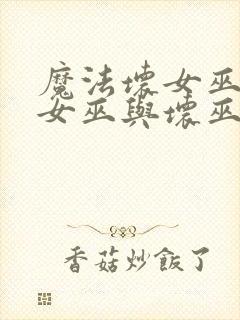 魔法壞女巫
女巫與壞巫
香菇炒飯了